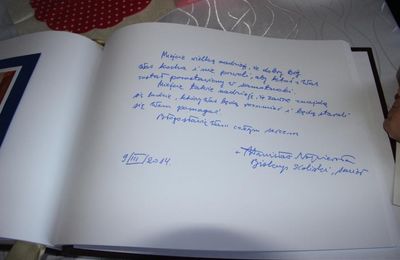 Miejcie wielką nadzieję, że dobry Bóg
Was kocha i nie pozwoli, aby ktoś z Was
został pozostawiony w samotności.
Miejcie także nadzieję, że zawsze znajdą
się ludzie, którzy Was będą rozumieć i będą starali
się Wam pomagać
Błogosławię Wam całym sercem
+ Stanisław
9/III/2014
Biskup